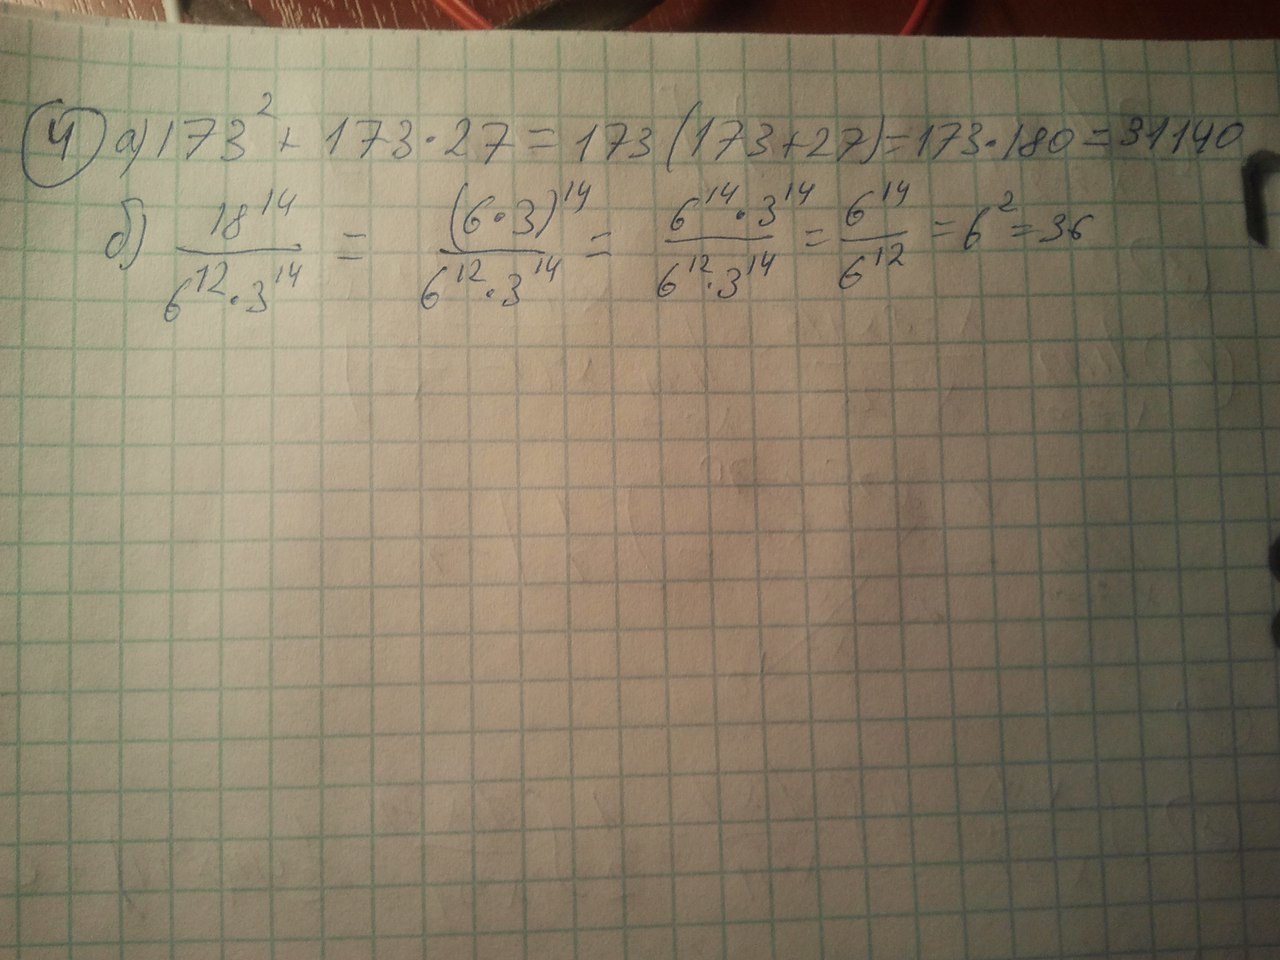 4 а) 173² + 173·27 = 173 (173+27) = 173·180 = 31140
б) 18¹⁴ / 6¹²·3¹⁴ = (6·3)¹⁴ / 6¹²·3¹⁴ = 6¹⁴·3¹⁴ / 6¹²·3¹⁴ = 6¹⁴ / 6¹² = 6² = 36